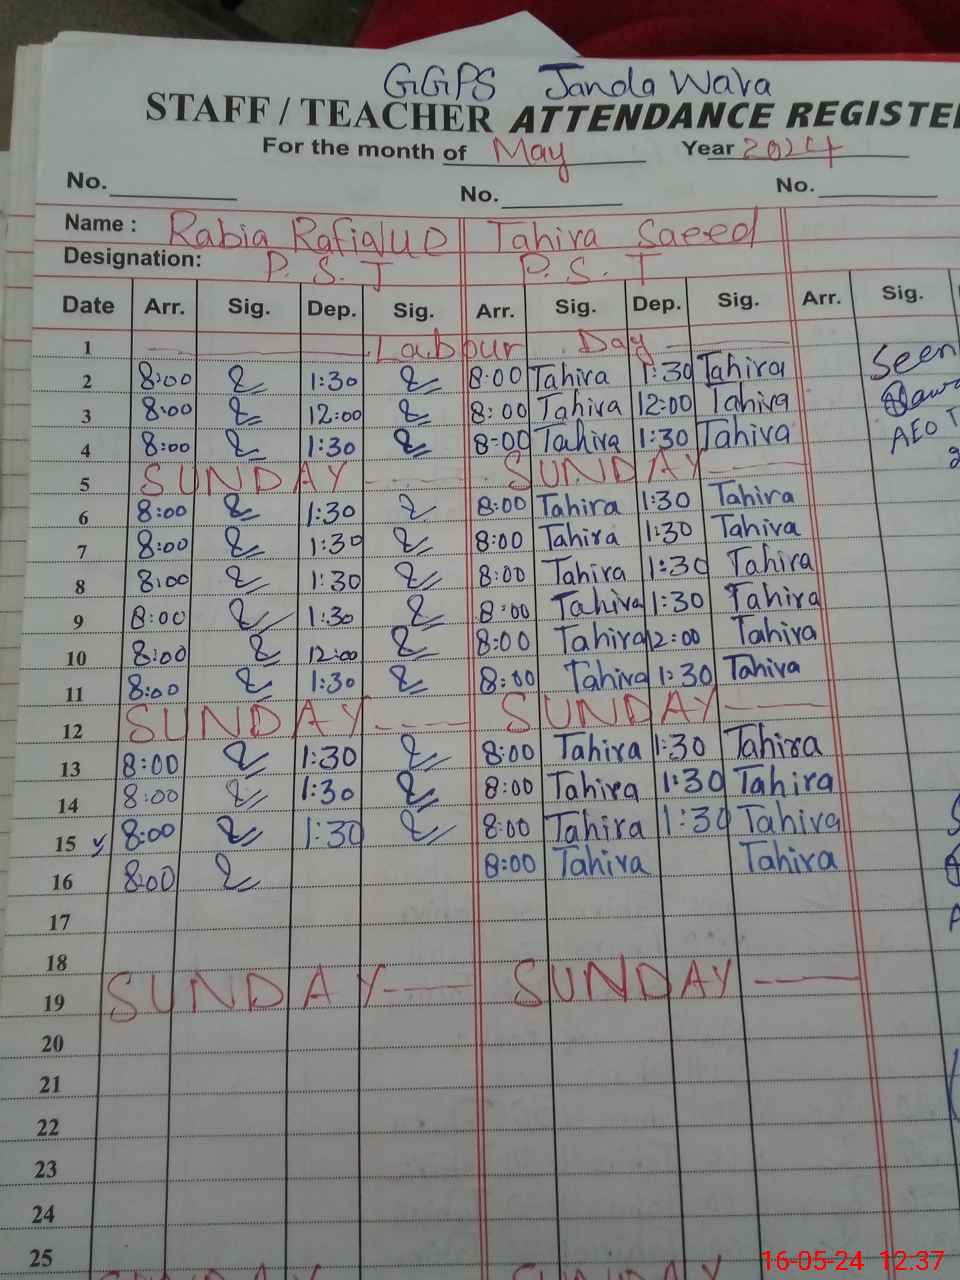 GGPS Janda Wara
STAFF / TEACHER ATTENDANCE REGISTE
For the month of May Year 2024
No. No. No.
Name : Rabia Rafique Tahira Saeed
Designation: P.S.T P.S.T
Date Arr. Sig. Dep. Sig. Arr. Sig. Dep. Sig. Arr. Sig.
1 Labour Day
2 8:00 1:30 8:00 Tahira 1:30 Tahira Seen
3 8:00 12:00 8:00 Tahira 12:00 Tahira
4 8:00 1:30 8:00 Tahira 1:30 Tahira AEO
5 SUNDAY SUNDAY
6 8:00 1:30 8:00 Tahira 1:30 Tahira
7 8:00 1:30 8:00 Tahira 1:30 Tahira
8 8:00 1:30 8:00 Tahira 1:30 Tahira
9 8:00 1:30 8:00 Tahira 1:30 Tahira
10 8:00 12:00 8:00 Tahira 12:00 Tahira
11 8:00 1:30 8:00 Tahira 1:30 Tahira
12 SUNDAY SUNDAY
13 8:00 1:30 8:00 Tahira 1:30 Tahira
14 8:00 1:30 8:00 Tahira 1:30 Tahira
15 8:00 1:30 8:00 Tahira 1:30 Tahira
16 8:00 8:00 Tahira Tahira
17
18
19 SUNDAY SUNDAY
20
21
22
23
24
25
16-05-24 12:37